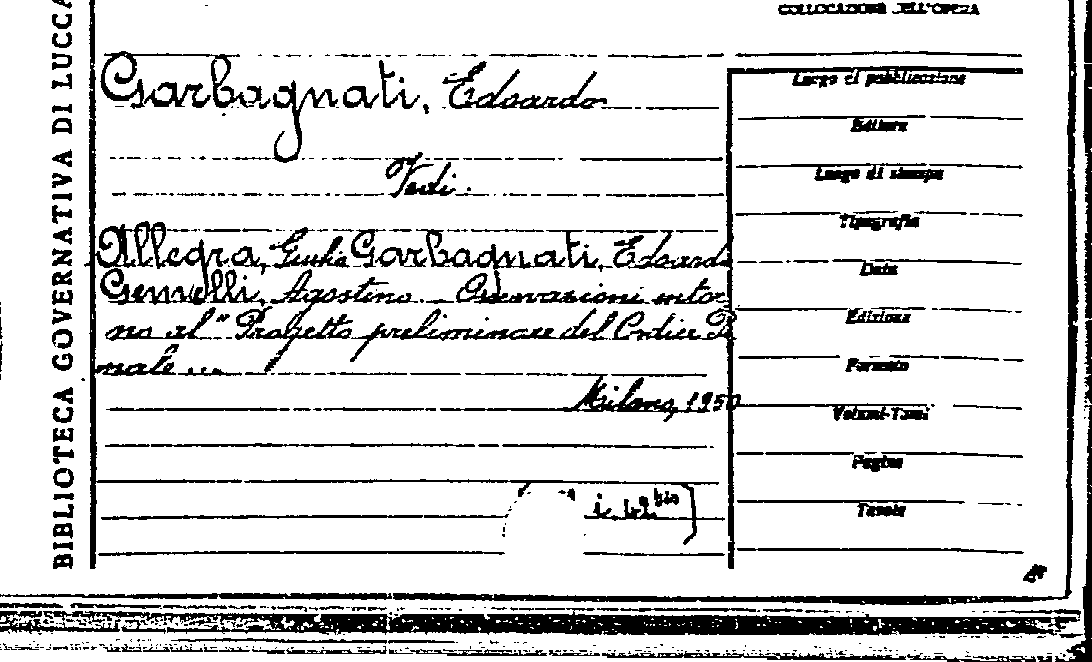 COLLOCAZIONE DELL'OPERA
BIBLIOTECA GOVERNATIVA DI LUCCA
Garbagnati, Edoardo
Vedi.
Allegra, Giulio Garbagnati, Edoardo
Gemelli, Agostino - Osservazioni intor
no al "Progetto preliminare del Codice Pe
nale ...
Milano, 1950
bis
Luogo di pubblicazione
Editore
Luogo di stampa
Tipografia
Data
Edizione
Formato
Volumi-Tomi
Pagine
Tavole